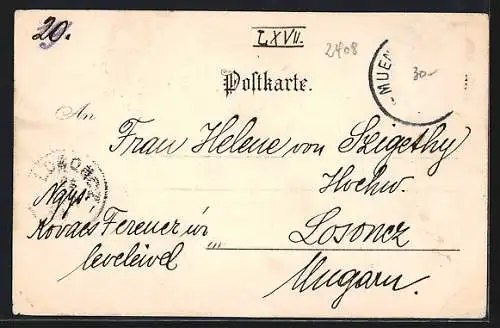 20.
LXVII.
2408
MUEN
30.-
Postkarte.
An
Frau Helene von Szigethy
Hochw.
LOSONCZ
Ngys.
Kovács Ferencz úr
levelével
Losoncz
Ungarn.